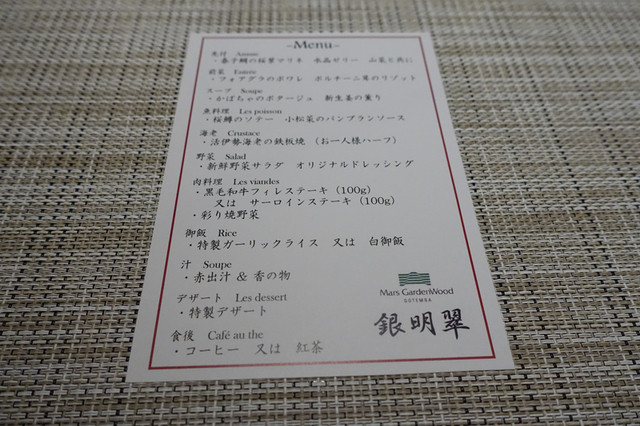 -Menu-
先付 Amuse
・春子鯛の桜葉マリネ 水晶ゼリー 山菜と共に
前菜 Entrée
・フォアグラのポワレ ポルチーニ茸のリゾット
スープ Soupe
・かぼちゃのポタージュ 新生姜の薫り
魚料理 Les poisson
・桜鱒のソテー 小松菜のバンブランソース
海老 Crustace
・活伊勢海老の鉄板焼 (お一人様ハーフ)
野菜 Salad
・新鮮野菜サラダ オリジナルドレッシング
肉料理 Les viandes
・黒毛和牛フィレステーキ (100g)
又は サーロインステーキ (100g)
・彩り焼野菜
御飯 Rice
・特製ガーリックライス 又は 白御飯
汁 Soupe
・赤出汁 & 香の物
デザート Les dessert
・特製デザート
食後 Café au the
・コーヒー 又は 紅茶
Mars GardenWood
GOTEMBA
銀明翠